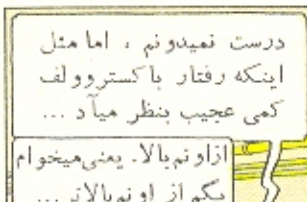 درست نمیدونم ، اما مثل
اینکه رفتار باکستر وولف
کمی عجیب بنظر میآد ...
ازاونم بالا. یعنی میخوام
بگم از اونم بالاتر ...